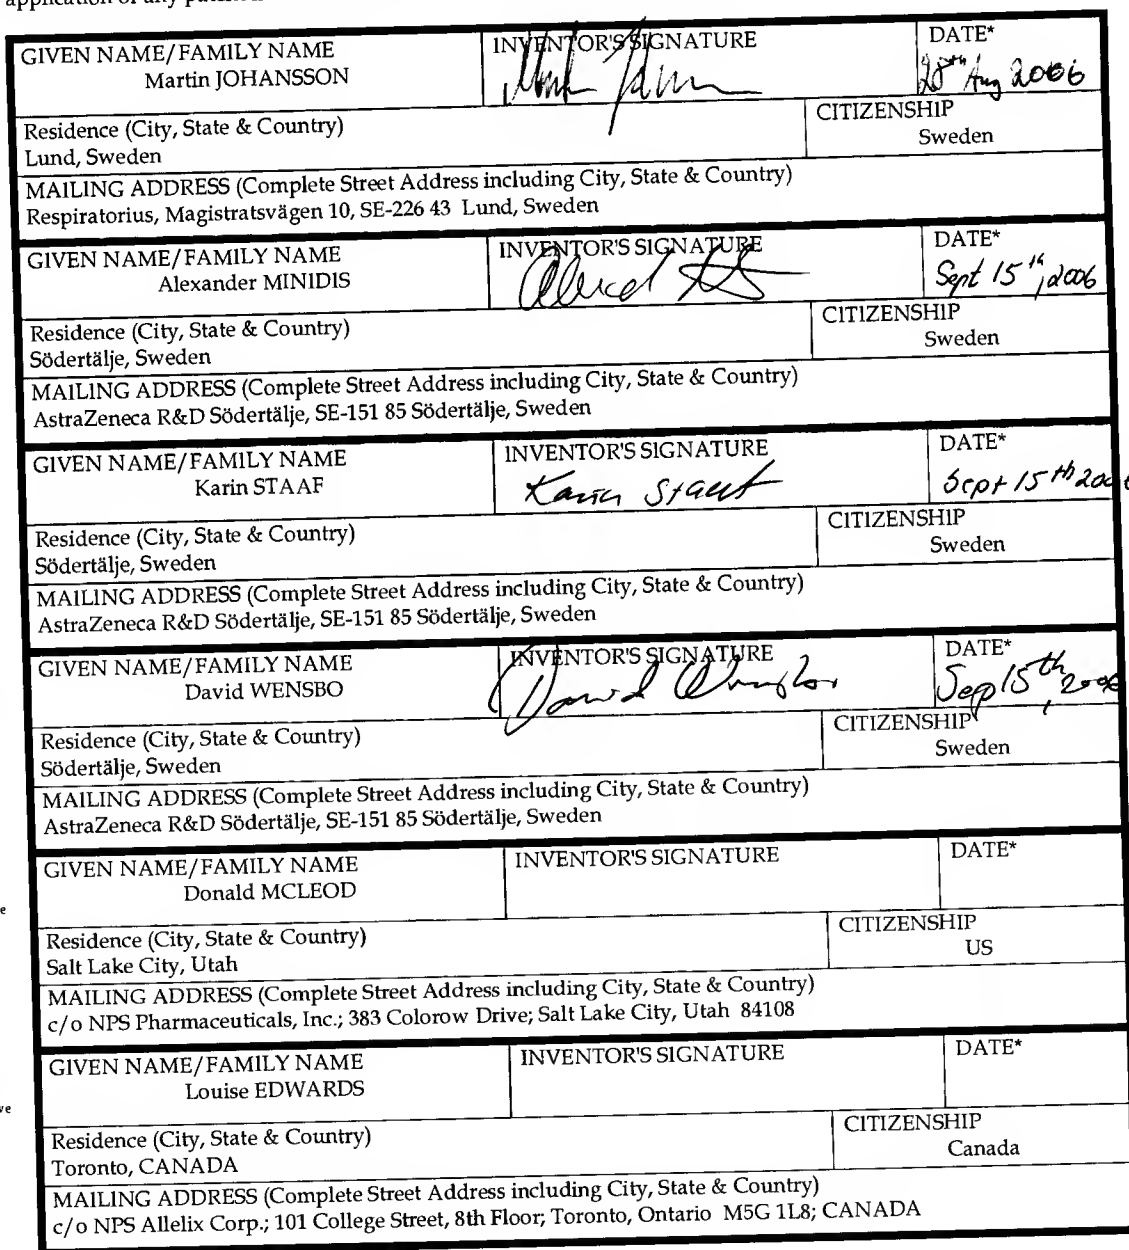 application of any patent
GIVEN NAME/FAMILY NAME INVENTOR'S SIGNATURE DATE*
Martin JOHANSSON 28th Aug 2006
Residence (City, State & Country) CITIZENSHIP
Lund, Sweden Sweden
MAILING ADDRESS (Complete Street Address including City, State & Country)
Respiratorius, Magistratsvägen 10, SE-226 43 Lund, Sweden
GIVEN NAME/FAMILY NAME INVENTOR'S SIGNATURE DATE*
Alexander MINIDIS Sept 15th, 2006
Residence (City, State & Country) CITIZENSHIP
Södertälje, Sweden Sweden
MAILING ADDRESS (Complete Street Address including City, State & Country)
AstraZeneca R&D Södertälje, SE-151 85 Södertälje, Sweden
GIVEN NAME/FAMILY NAME INVENTOR'S SIGNATURE DATE*
Karin STAAF Karin Staaf Sept 15th 2006
Residence (City, State & Country) CITIZENSHIP
Södertälje, Sweden Sweden
MAILING ADDRESS (Complete Street Address including City, State & Country)
AstraZeneca R&D Södertälje, SE-151 85 Södertälje, Sweden
GIVEN NAME/FAMILY NAME INVENTOR'S SIGNATURE DATE*
David WENSBO David Wensbo Sep 15th, 2006
Residence (City, State & Country) CITIZENSHIP
Södertälje, Sweden Sweden
MAILING ADDRESS (Complete Street Address including City, State & Country)
AstraZeneca R&D Södertälje, SE-151 85 Södertälje, Sweden
GIVEN NAME/FAMILY NAME INVENTOR'S SIGNATURE DATE*
Donald MCLEOD
Residence (City, State & Country) CITIZENSHIP
Salt Lake City, Utah US
MAILING ADDRESS (Complete Street Address including City, State & Country)
c/o NPS Pharmaceuticals, Inc.; 383 Colorow Drive; Salt Lake City, Utah 84108
GIVEN NAME/FAMILY NAME INVENTOR'S SIGNATURE DATE*
Louise EDWARDS
Residence (City, State & Country) CITIZENSHIP
Toronto, CANADA Canada
MAILING ADDRESS (Complete Street Address including City, State & Country)
c/o NPS Allelix Corp.; 101 College Street, 8th Floor; Toronto, Ontario M5G 1L8; CANADA